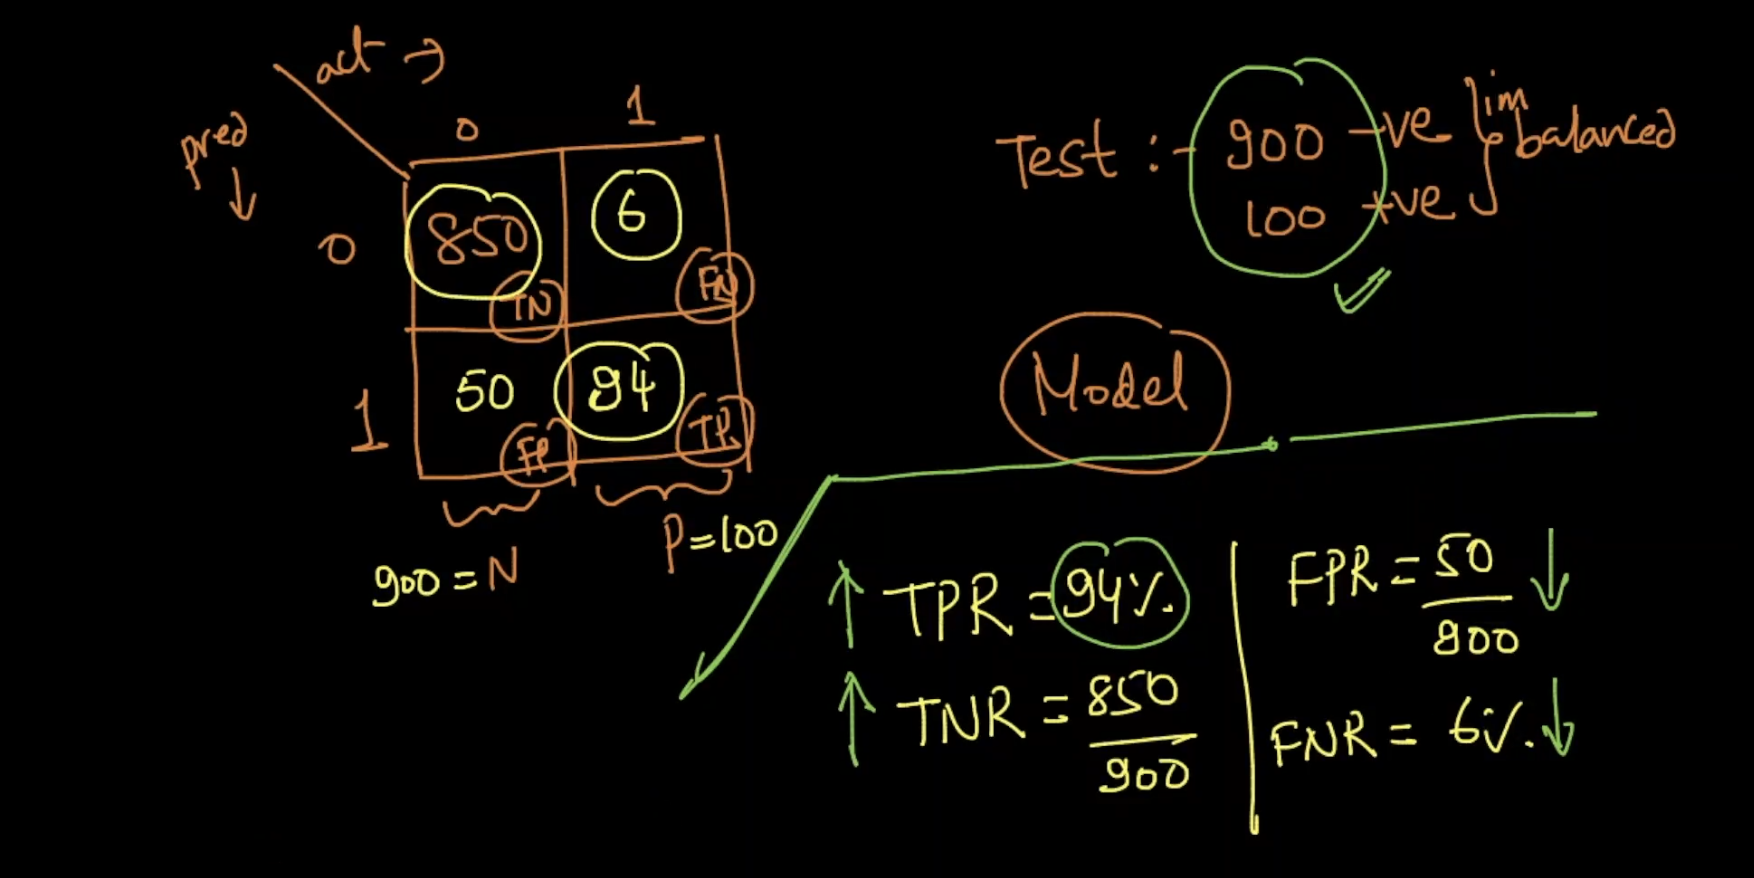 act →
pred ↓
0 1
0 850 TN 6 FN
1 50 FP 94 TP
900 = N
P = 100
Test :- 900 -ve
100 +ve
imbalanced
Model
↑ TPR = 94%
↑ TNR = 850/900
FPR = 50/900 ↓
FNR = 6% ↓